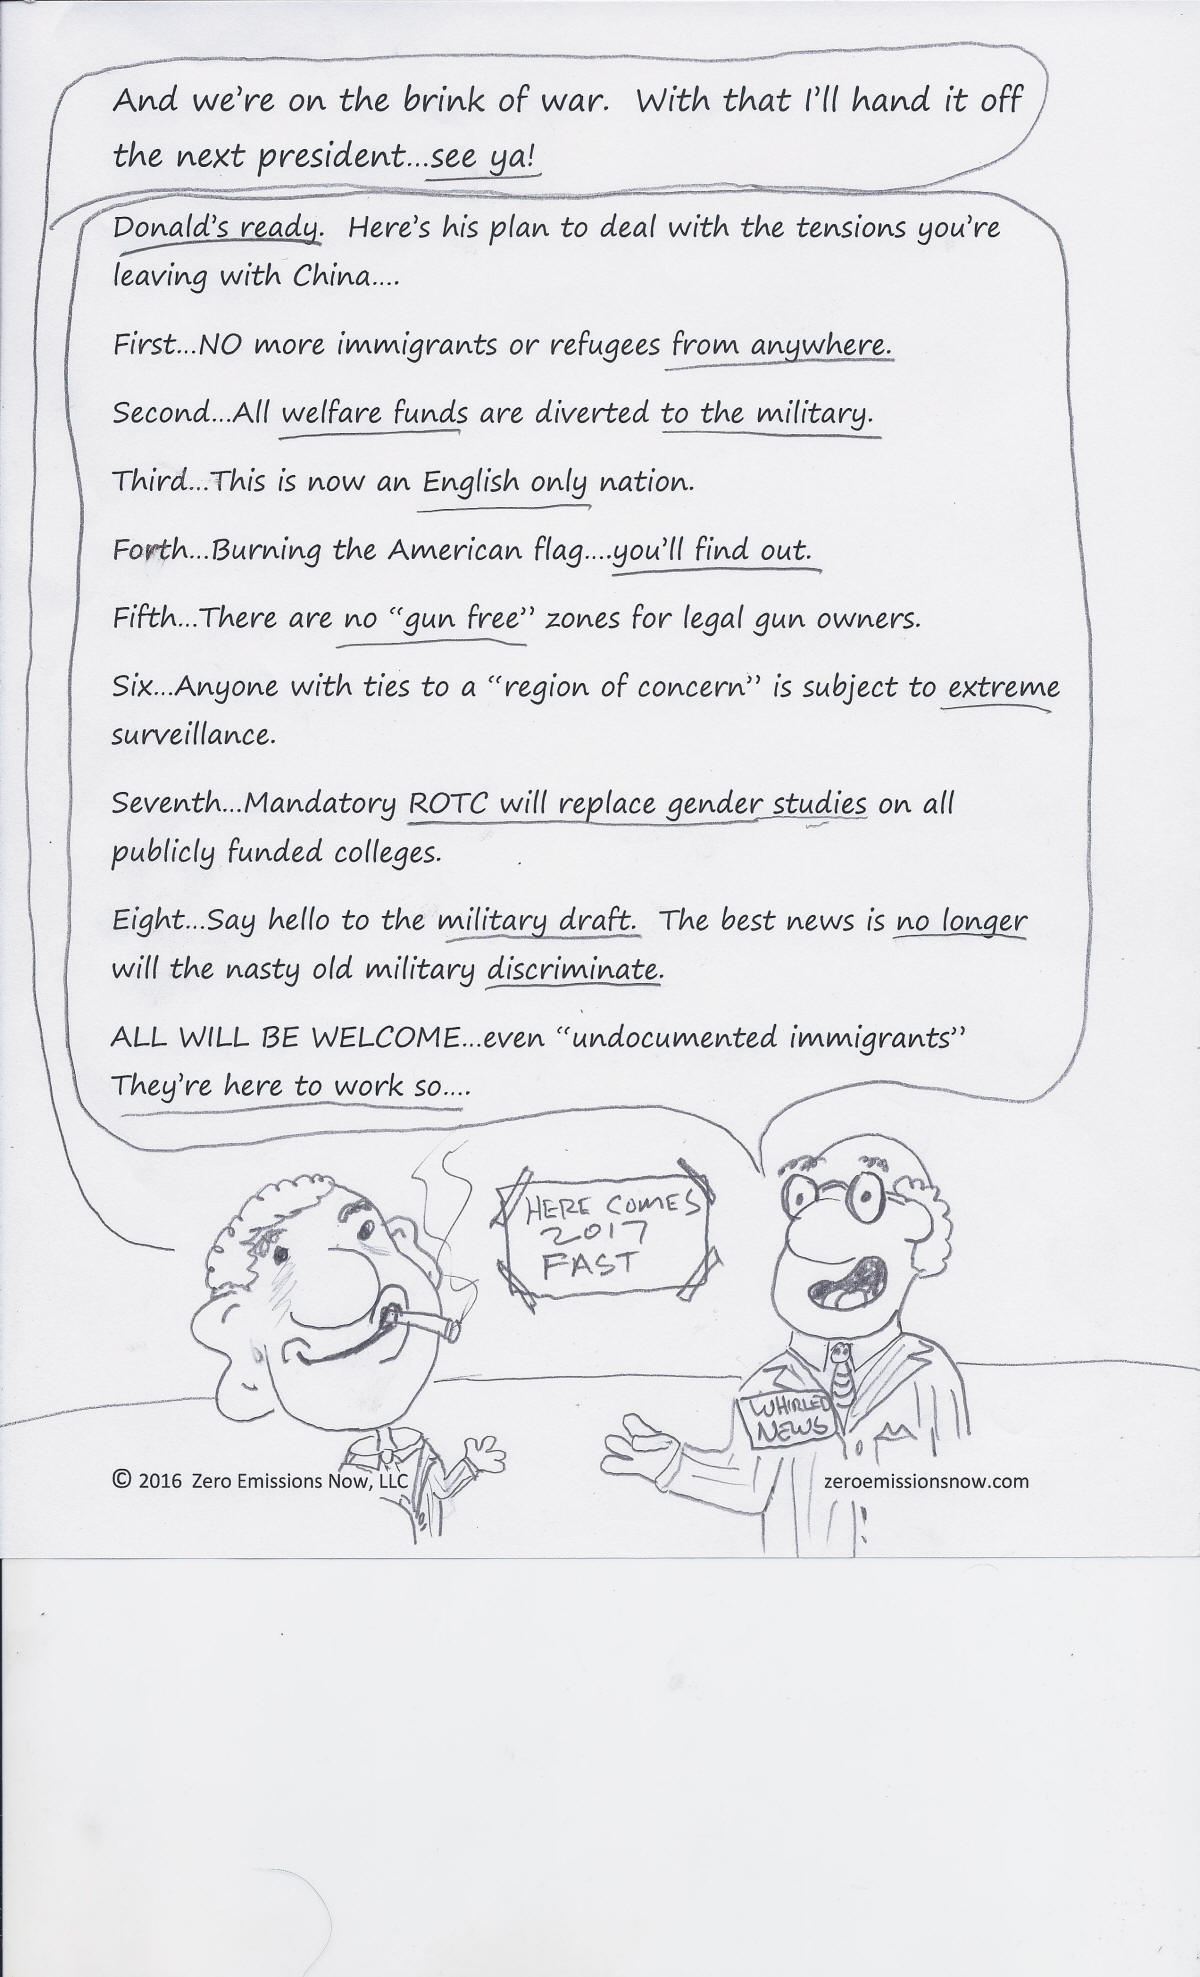 And we're on the brink of war.  With that I'll hand it off
the next president...see ya!
Donald's ready.  Here's his plan to deal with the tensions you're
leaving with China....
First...NO more immigrants or refugees from anywhere.
Second...All welfare funds are diverted to the military.
Third...This is now an English only nation.
Forth...Burning the American flag....you'll find out.
Fifth...There are no “gun free” zones for legal gun owners.
Six...Anyone with ties to a “region of concern” is subject to extreme
surveillance.
Seventh...Mandatory ROTC will replace gender studies on all
publicly funded colleges.
Eight...Say hello to the military draft.  The best news is no longer
will the nasty old military discriminate.
ALL WILL BE WELCOME...even “undocumented immigrants”
They're here to work so....
HERE COMES
2017
FAST
WHIRLED
NEWS
© 2016  Zero Emissions Now, LLC
zeroemissionsnow.com